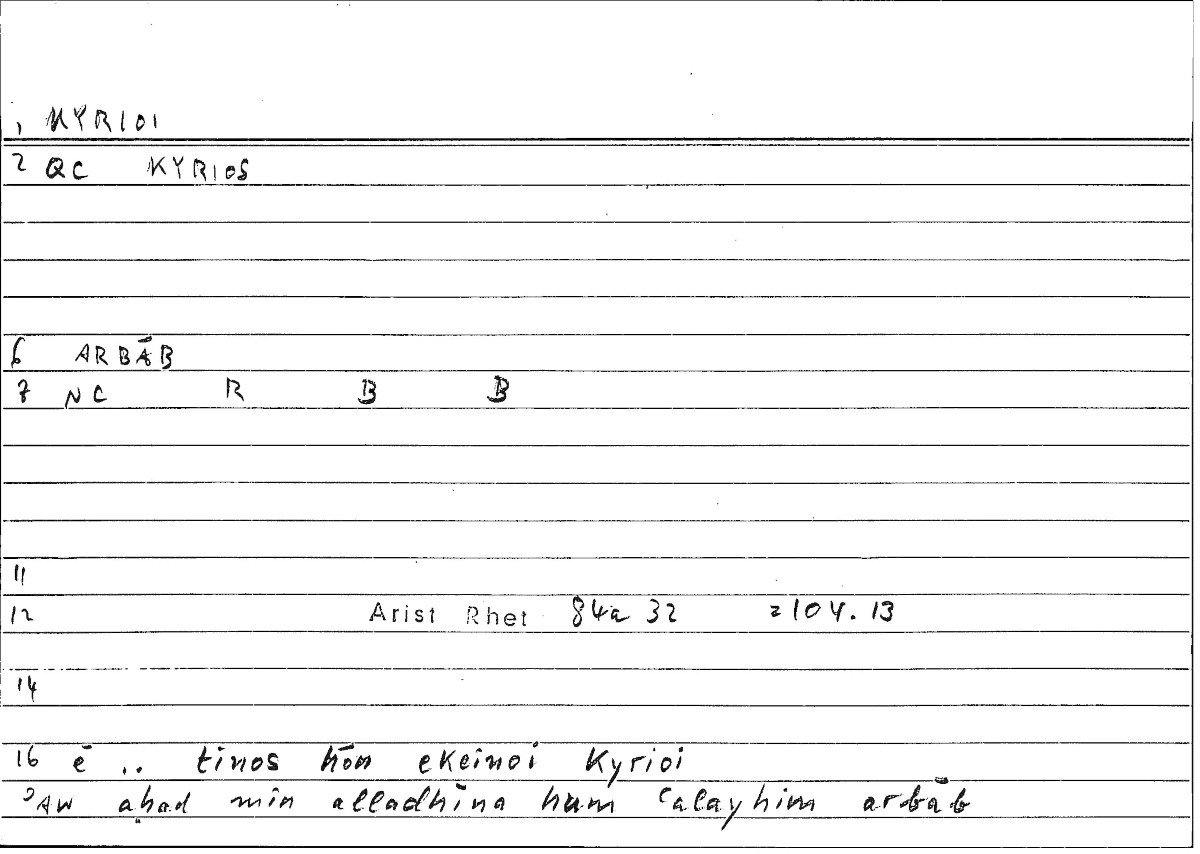 1 KYRIOI
2 QC KYRIOS
6 ARBĀB
7 NC R B B
11
12 Arist Rhet 84a 32 =104.13
14
16 ē .. tinos hōn ekeinoi Kyrioi
ʾAW aḥad min alladhīna hum ʿalayhim arbāb